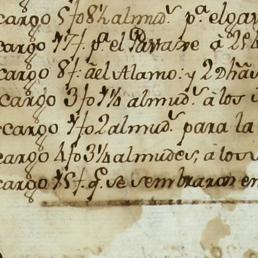 cargo 5f 8½ almud.s p.a el gav
cargo 17f. p.a el
cargo 8f. àel Alamo: y 2
cargo 3f 1½ almud.s à los
cargo 1f 2 almud.s para la
cargo 4f 3¼ almudes, à los
cargo 15f. q.e se sembraron en